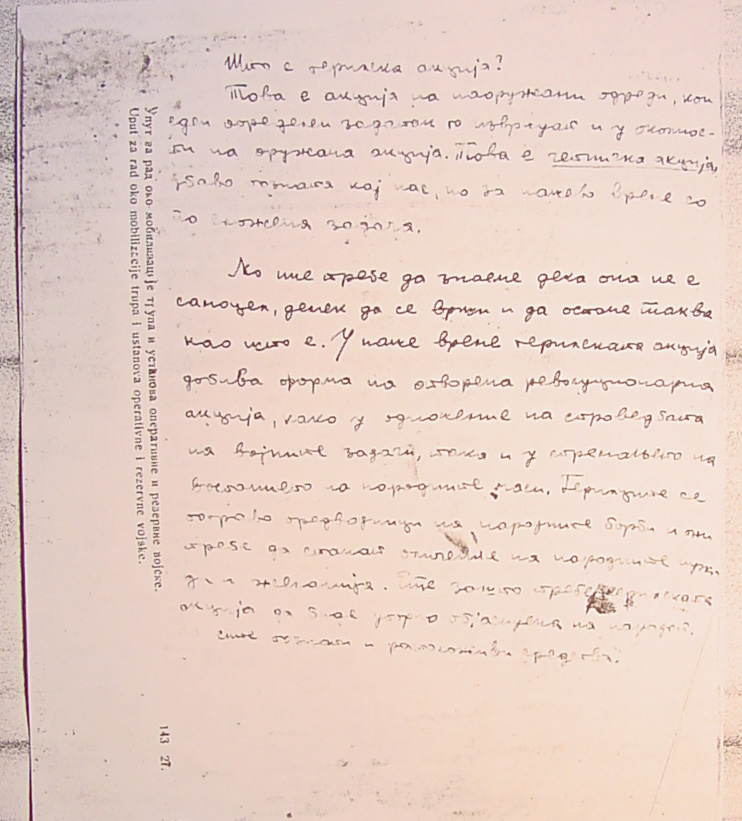 Што е герилска акција?
Това е акција на наоружани одреди, кои
еден определен задаток го извршуат и у околнос-
ти на оружана акција. Това е четничка акција,
убаво позната кај нас, но за наково време со
по сложена задача.
Но ние требе да знаеме дека она не е
самоцел, демек да се врши и да остане таква
као што е. У наше време герилската акција
добива форма на отворена револуционарна
акција, како у одношение на спроведбата
на војните задачи, така и у стремљењето на
востанието на народните маси. Герилците се
предводници на народните борби и они
требе да станат на народните
и желанија. Ете зашто требе герилската
акција да биде објаснена на народот.
сите познати и средства.
Упут за рад око мобилизације трупа и установа оперативне и резервне војске.
Uput za rad oko mobilizacije trupa i ustanova operativne i rezervne vojske.
143 27.